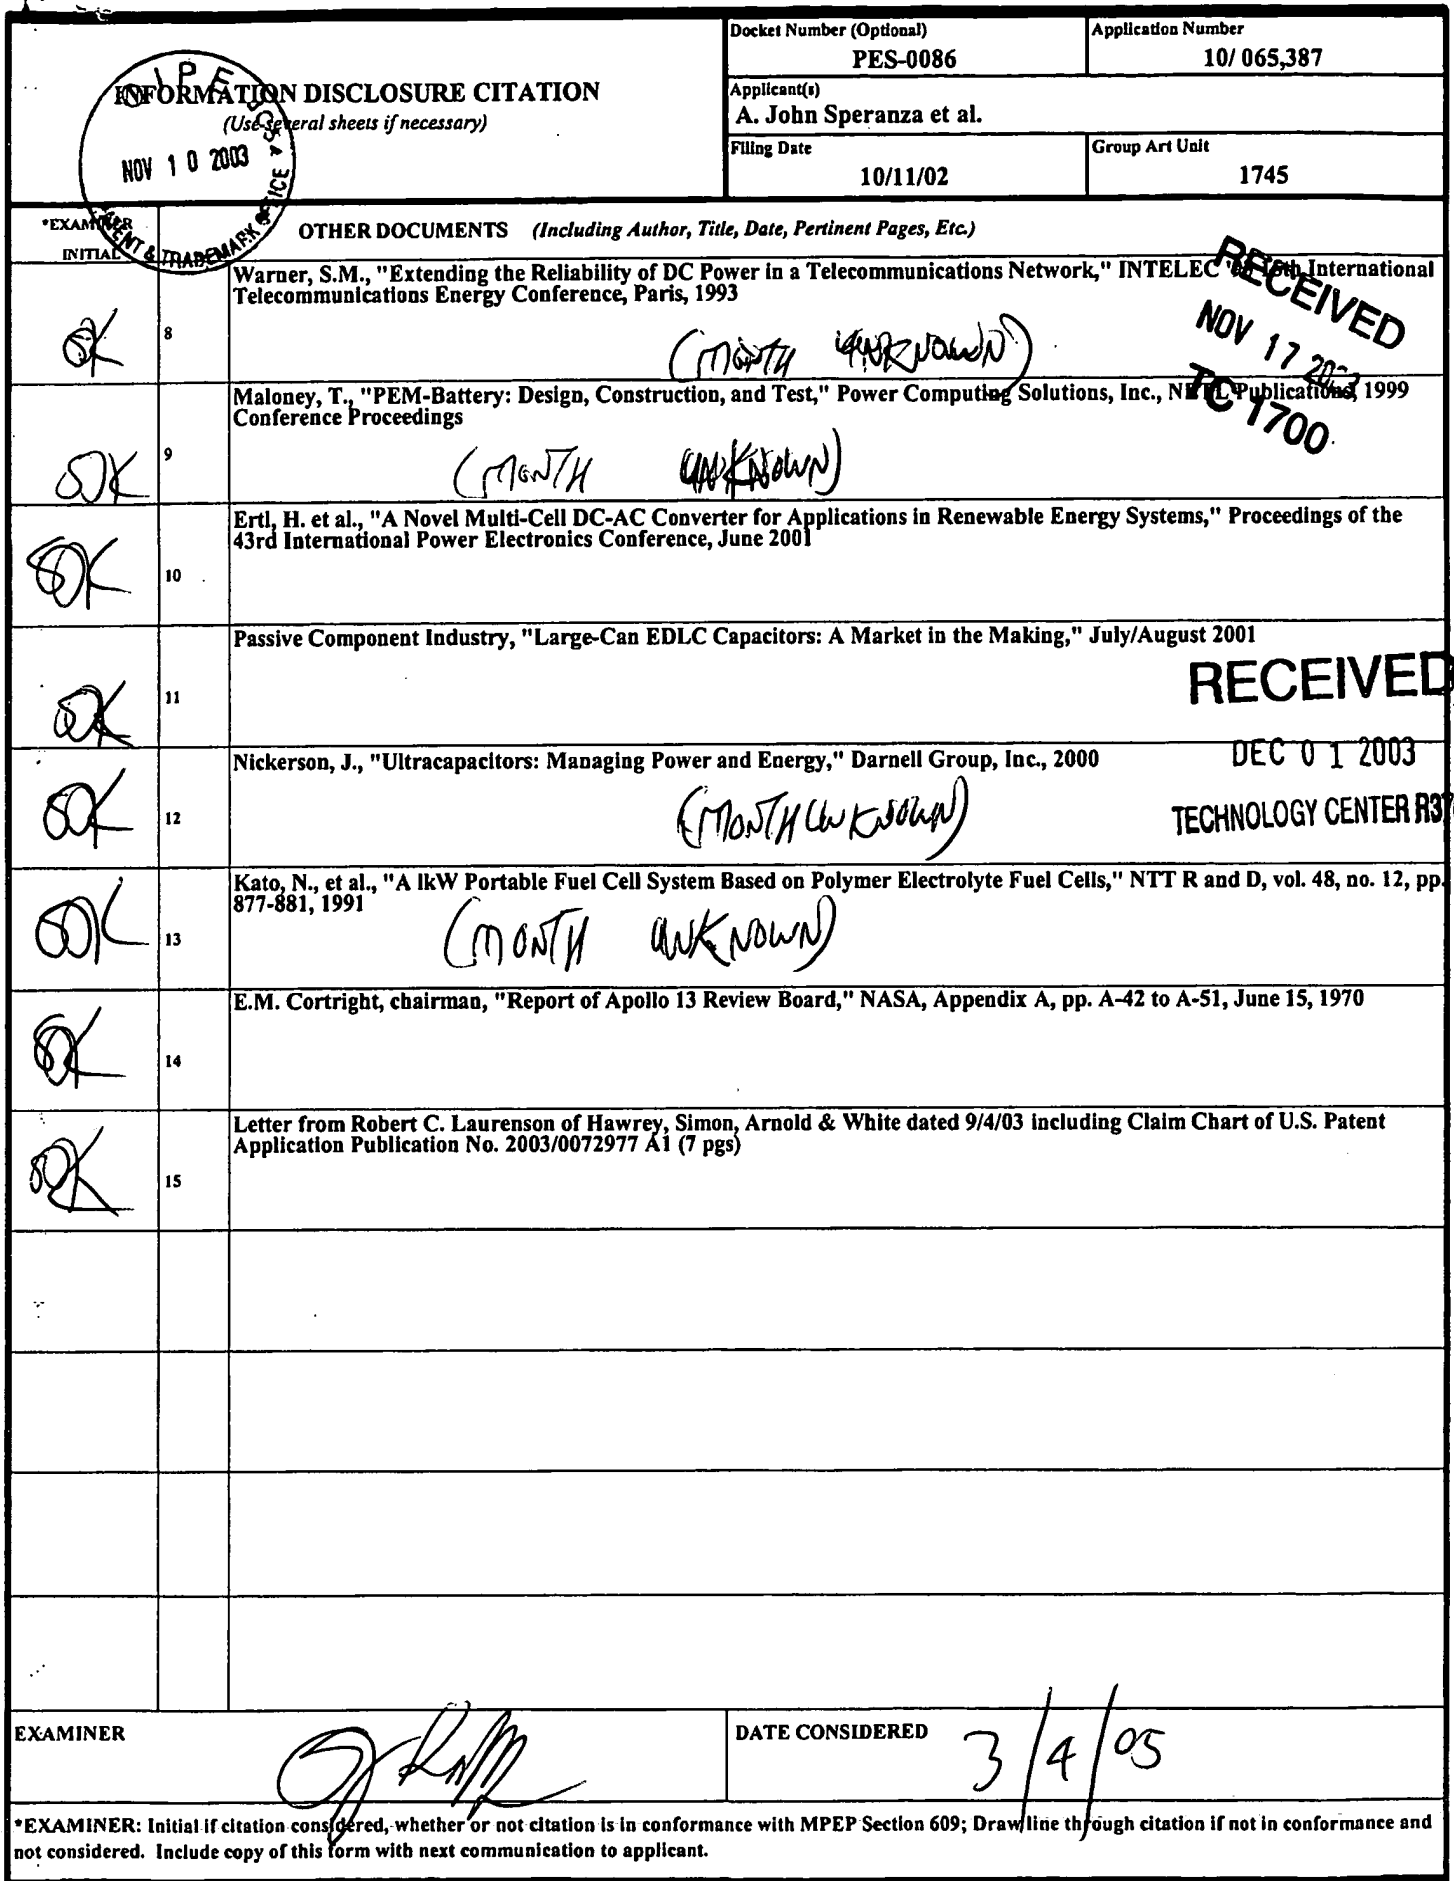 Docket Number (Optional)
PES-0086
Application Number
10/ 065,387
INFORMATION DISCLOSURE CITATION
(Use several sheets if necessary)
Applicant(s)
A. John Speranza et al.
Filing Date
10/11/02
Group Art Unit
1745
O I P E
NOV 1 0 2003
PATENT & TRADEMARK OFFICE
*EXAMINER
INITIAL
OTHER DOCUMENTS (Including Author, Title, Date, Pertinent Pages, Etc.)
8
Warner, S.M., "Extending the Reliability of DC Power in a Telecommunications Network," INTELEC International
Telecommunications Energy Conference, Paris, 1993
(MONTH UNKNOWN)
RECEIVED
NOV 17
TC 1700
9
Maloney, T., "PEM-Battery: Design, Construction, and Test," Power Computing Solutions, Inc., Publications, 1999
Conference Proceedings
(MONTH UNKNOWN)
10
Ertl, H. et al., "A Novel Multi-Cell DC-AC Converter for Applications in Renewable Energy Systems," Proceedings of the
43rd International Power Electronics Conference, June 2001
11
Passive Component Industry, "Large-Can EDLC Capacitors: A Market in the Making," July/August 2001
RECEIVED
DEC 0 1 2003
TECHNOLOGY CENTER R37
12
Nickerson, J., "Ultracapacitors: Managing Power and Energy," Darnell Group, Inc., 2000
(MONTH UNKNOWN)
13
Kato, N., et al., "A lkW Portable Fuel Cell System Based on Polymer Electrolyte Fuel Cells," NTT R and D, vol. 48, no. 12, pp.
877-881, 1991
(MONTH UNKNOWN)
14
E.M. Cortright, chairman, "Report of Apollo 13 Review Board," NASA, Appendix A, pp. A-42 to A-51, June 15, 1970
15
Letter from Robert C. Laurenson of Hawrey, Simon, Arnold & White dated 9/4/03 including Claim Chart of U.S. Patent
Application Publication No. 2003/0072977 A1 (7 pgs)
EXAMINER
DATE CONSIDERED
3/4/05
*EXAMINER: Initial if citation considered, whether or not citation is in conformance with MPEP Section 609; Draw line through citation if not in conformance and
not considered. Include copy of this form with next communication to applicant.